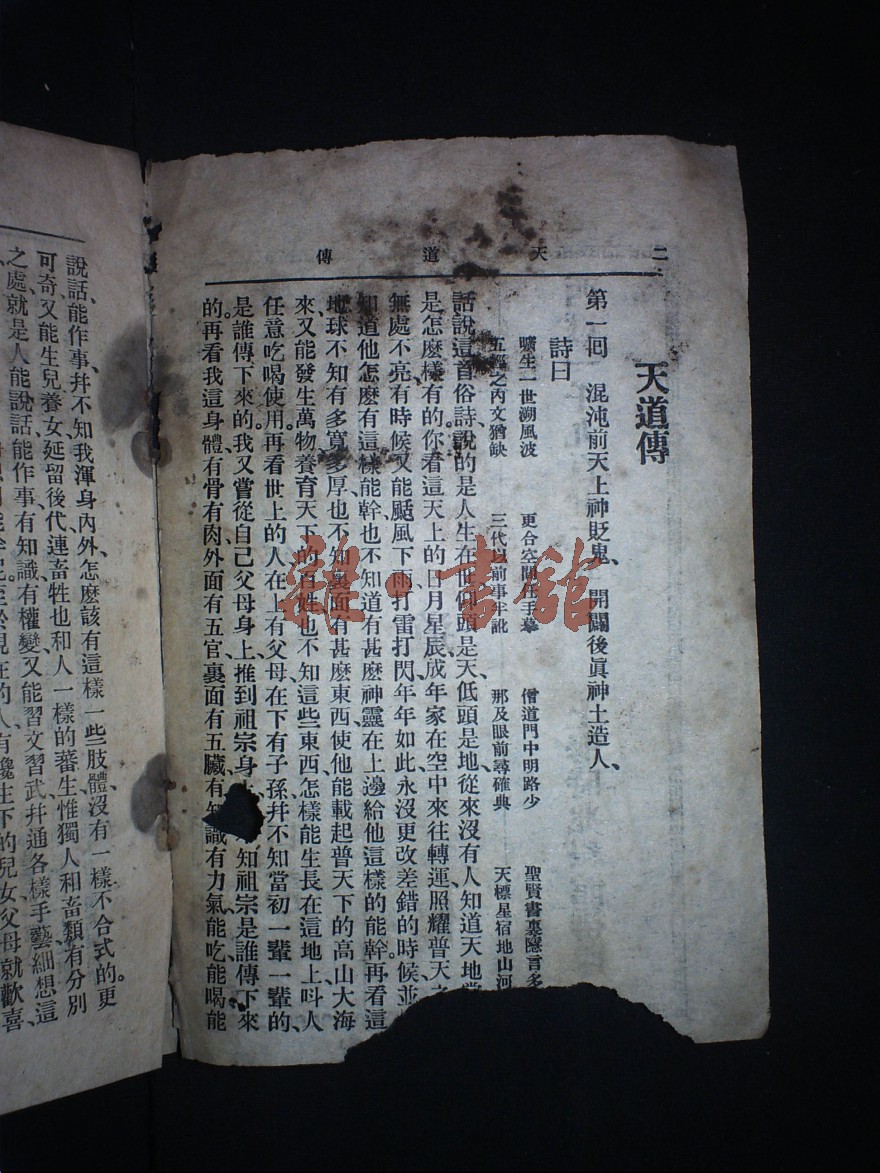 二 天道傳
天道傳
第一回 混沌前天上神貶鬼、開闢後眞神土造人、
詩曰
曠生一世溯風波 更合空閒任手摹 僧道門中明路少 聖賢書裏隱言多
五經之內文猶缺 三代以前事半訛 那及眼前尋確典 天標星宿地山河
話說這首俗詩說的是人生在世仰頭是天低頭是地從來沒有人知道天地
是怎麽樣有的你看這天上的日月星辰成年家在空中來往轉運照耀普天
無處不亮有時候又能颳風下雨打雷打閃年年如此永沒更改差錯的時候並
知道他怎麽有這樣能幹也不知道有甚麽神靈在上邊給他這樣的能幹再看這
地球不知有多寬多厚也不知裏面有甚麽東西使他能載起普天下的高山大海
來又能發生萬物養育天下的百姓也不知這些東西怎樣能生長在這地上呌人
任意吃喝使用。再看世上的人在上有父母在下有子孫幷不知當初一輩一輩的
是誰傳下來的我又嘗從自己父母身上推到祖宗身 知祖宗是誰傳下來
的。再看我這身體有骨有肉外面有五官裏面有五臟有知識有力氣能吃能喝能
說話能作事幷不知我渾身內外怎麽該有這樣一些肢體沒有一樣不合式的更
可奇又能生兒養女延留後代連畜牲也和人一樣的蕃生惟獨人和畜類有分別
之處就是人能說話能作事有知識有權變又能習文習武幷通各樣手藝細想這
現在的人有纔生下的兒女父母就歡喜
雜·書館